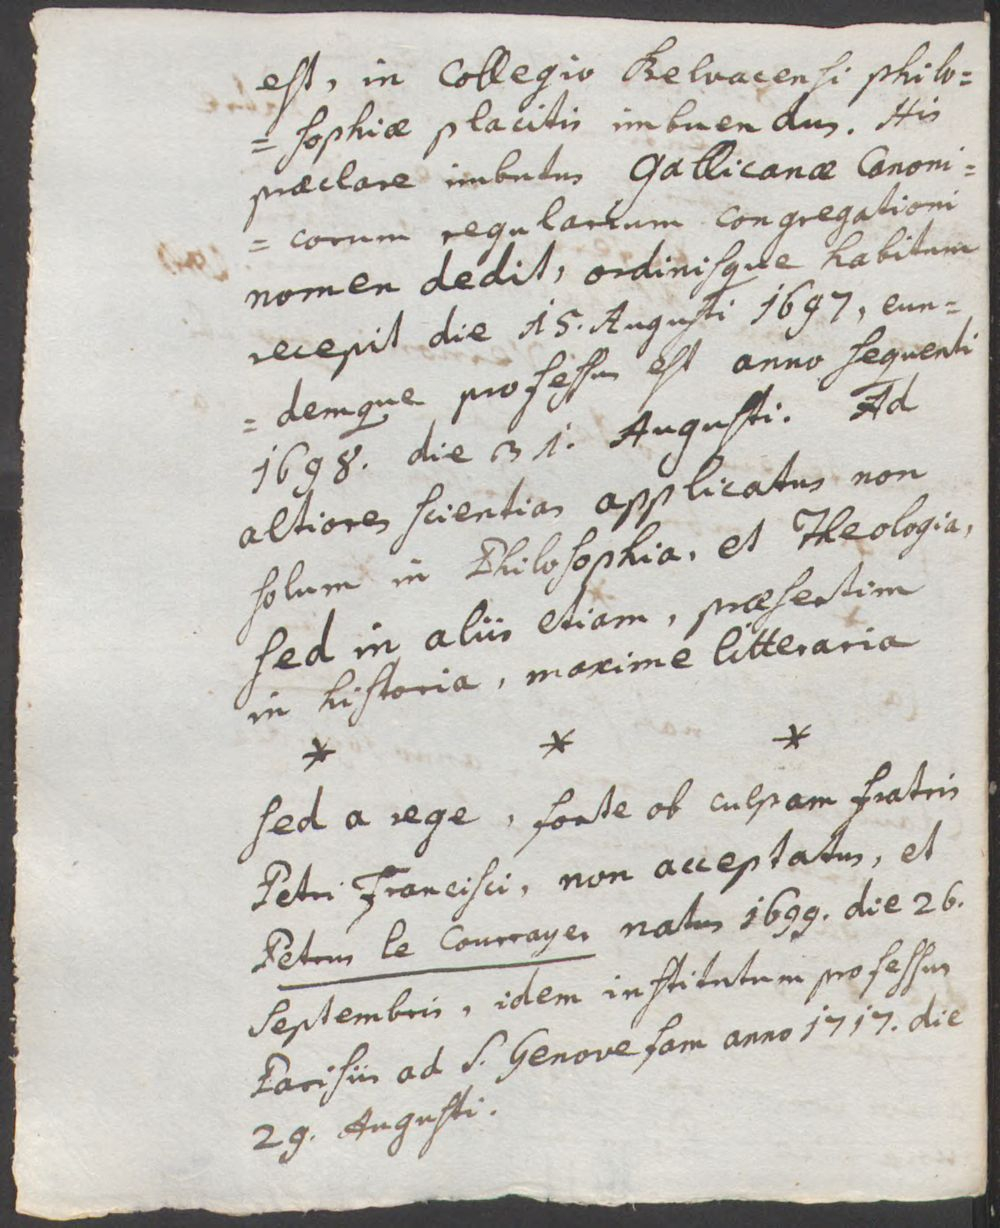 est, in Collegio Belvacensi philo=
= sophiæ placitis imbuendus. His
præclare imbutus Gallicanæ Canoni=
= corum regularium congregationi
nomen dedit, ordinisque habitum
recepit die 15. Augusti 1697, eun=
= demque professus est anno sequenti
1698. die 31. Augusti. Ad
altiores scientias applicatus non
solum in Philosophia, et Theologia,
sed in aliis etiam, præsertim
in historia, maxime litteraria
* * *
sed a rege, forte ob culpam fratris
Petri Francisci, non acceptatus, et
Petrus le Courrayer natus 1699. die 26.
Septembris, idem institutum professus
Parisiis ad S. Genovefam anno 1717. die
29. Augusti.